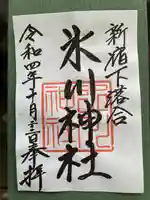 新宿下落合
氷川神社
令和四年十月三日奉拝